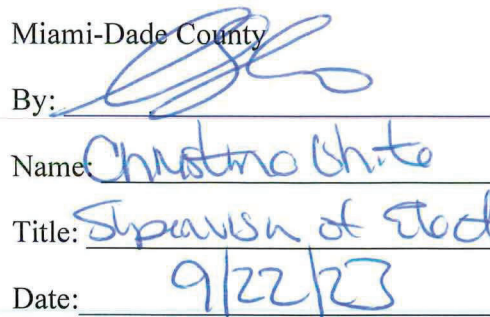 Miami-Dade County
By:
Name: Christina White
Title: Supervisor of Elect
Date: 9/22/23